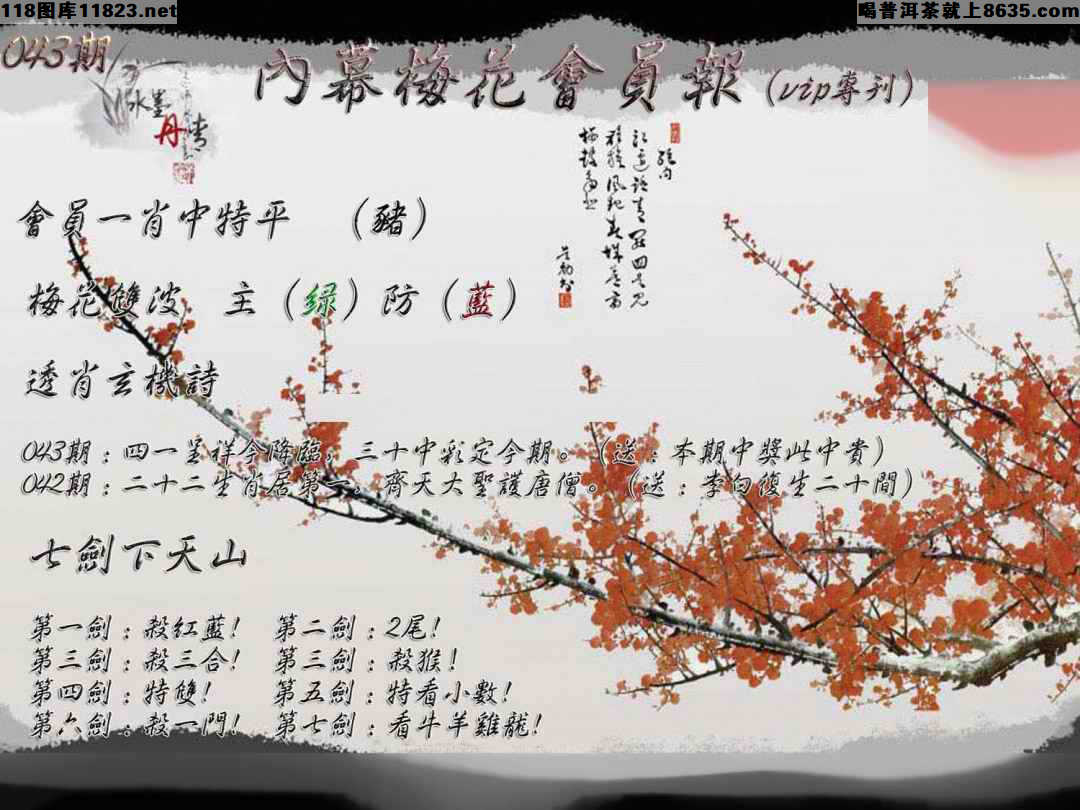 118图库11823.net
喝普洱茶就上8635.com
043期
內幕梅花會員報(vip專刊)
水墨丹青
會員一肖中特平 （豬）
梅花雙波 主（绿）防（藍）
透肖玄機詩
043期：四一呈祥今降臨，三十中彩定今期。（送：本期中獎此中貴）
042期：二十二生肖居第一，齊天大聖護唐僧。（送：李白復生二十間）
七劍下天山
第一劍：殺紅藍! 第二劍：2尾!
第三劍：殺三合! 第三劍：殺猴!
第四劍：特雙! 第五劍：特看小數!
第六劍：殺一門! 第七劍：看牛羊雞龍!